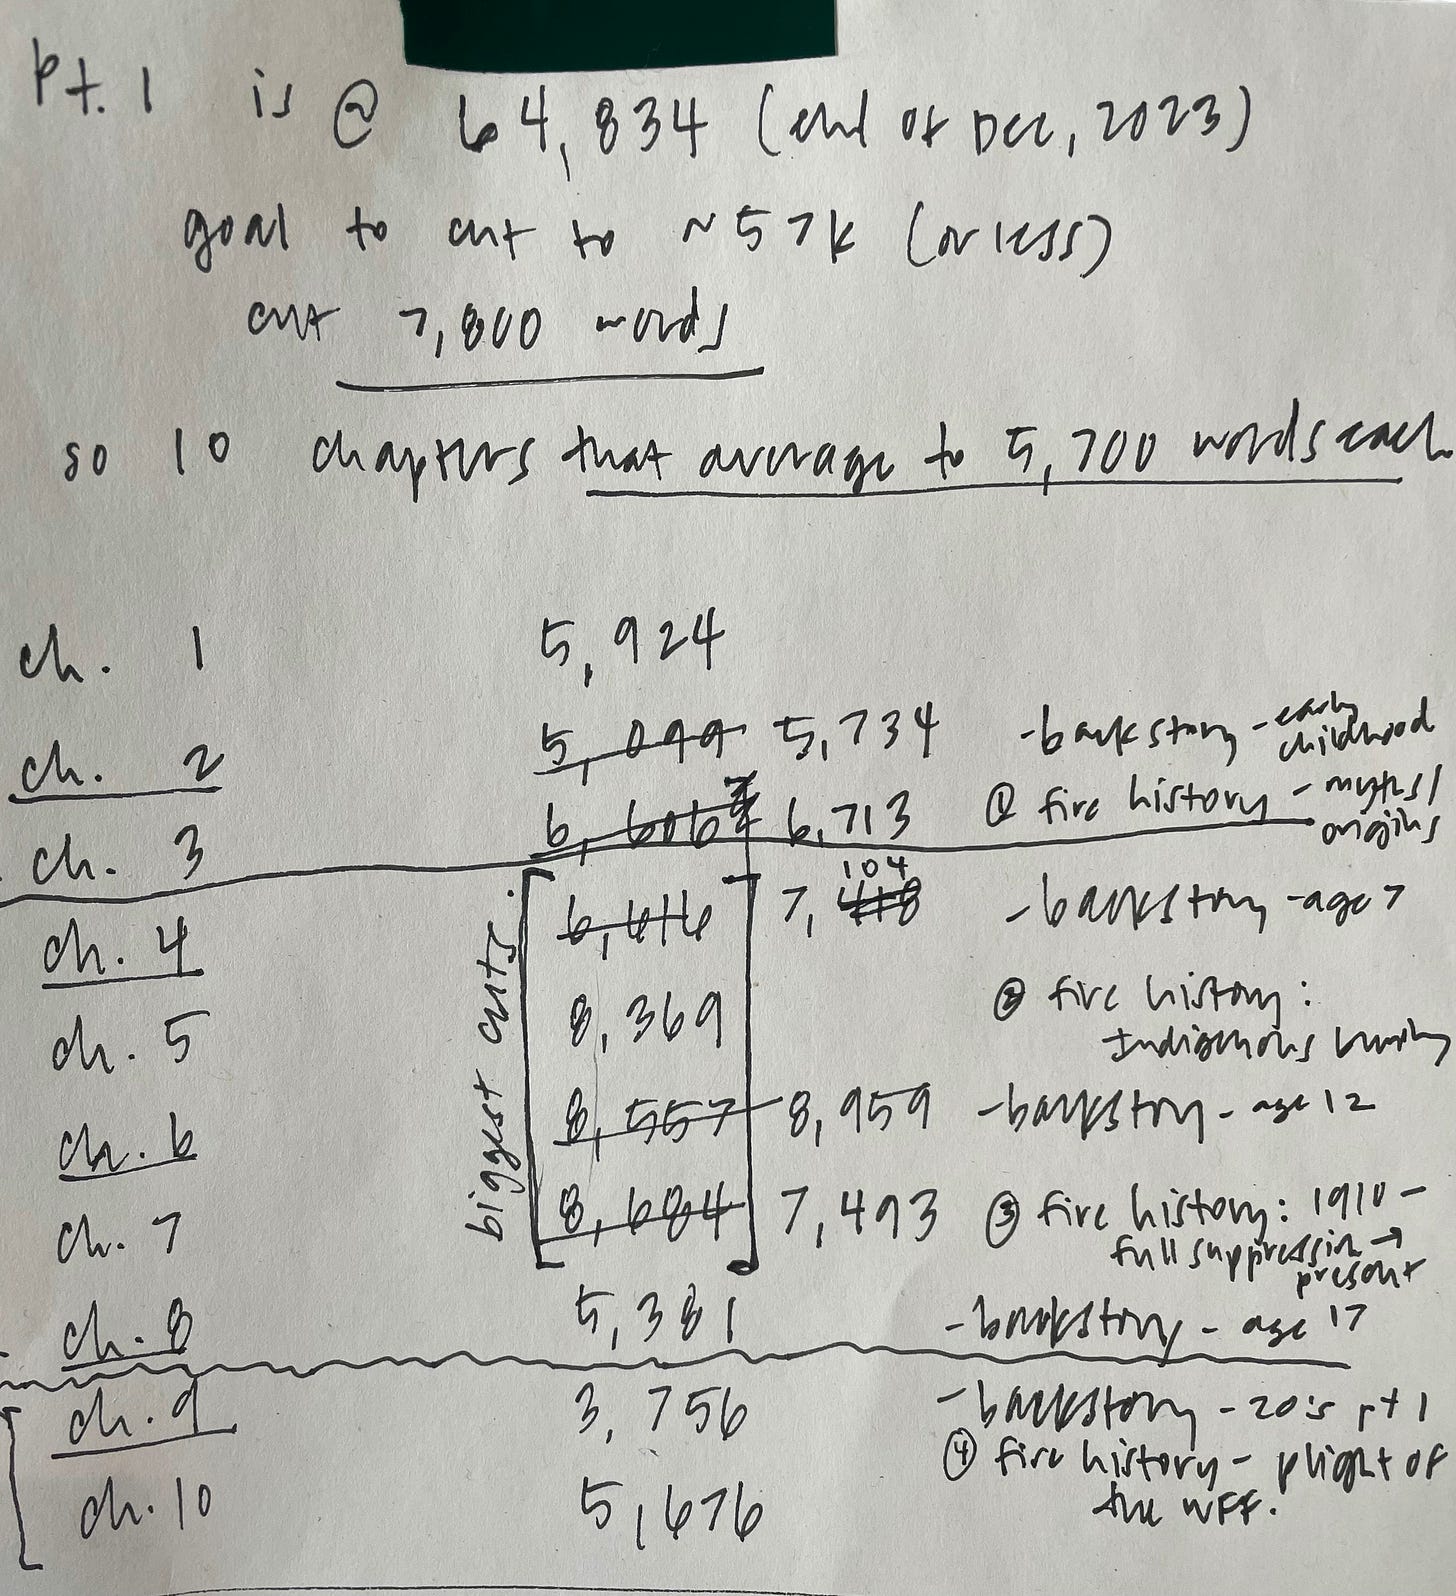 Pt. 1 is @ 64,834 (end of Dec, 2023)
goal to cut to ~57k (or less)
cut 7,800 words
so 10 chapters that average to 5,700 words each
ch. 1 5,924
ch. 2 5,099 5,734 -backstory - early childhood
ch. 3 6,606 6,713 ① fire history - myths/origins
biggest cuts
ch. 4 6,616 7, 418 104 -backstory - age 7
ch. 5 8,369 ② fire history: Indigenous burning
ch. 6 8,557 8,959 -backstory - age 12
ch. 7 8,684 7,493 ③ fire history: 1910 - full suppression → present
ch. 8 5,381 -backstory - age 17
ch. 9 3,756 -backstory - 20's pt 1
ch. 10 5,676 ④ fire history - plight of the WFF.